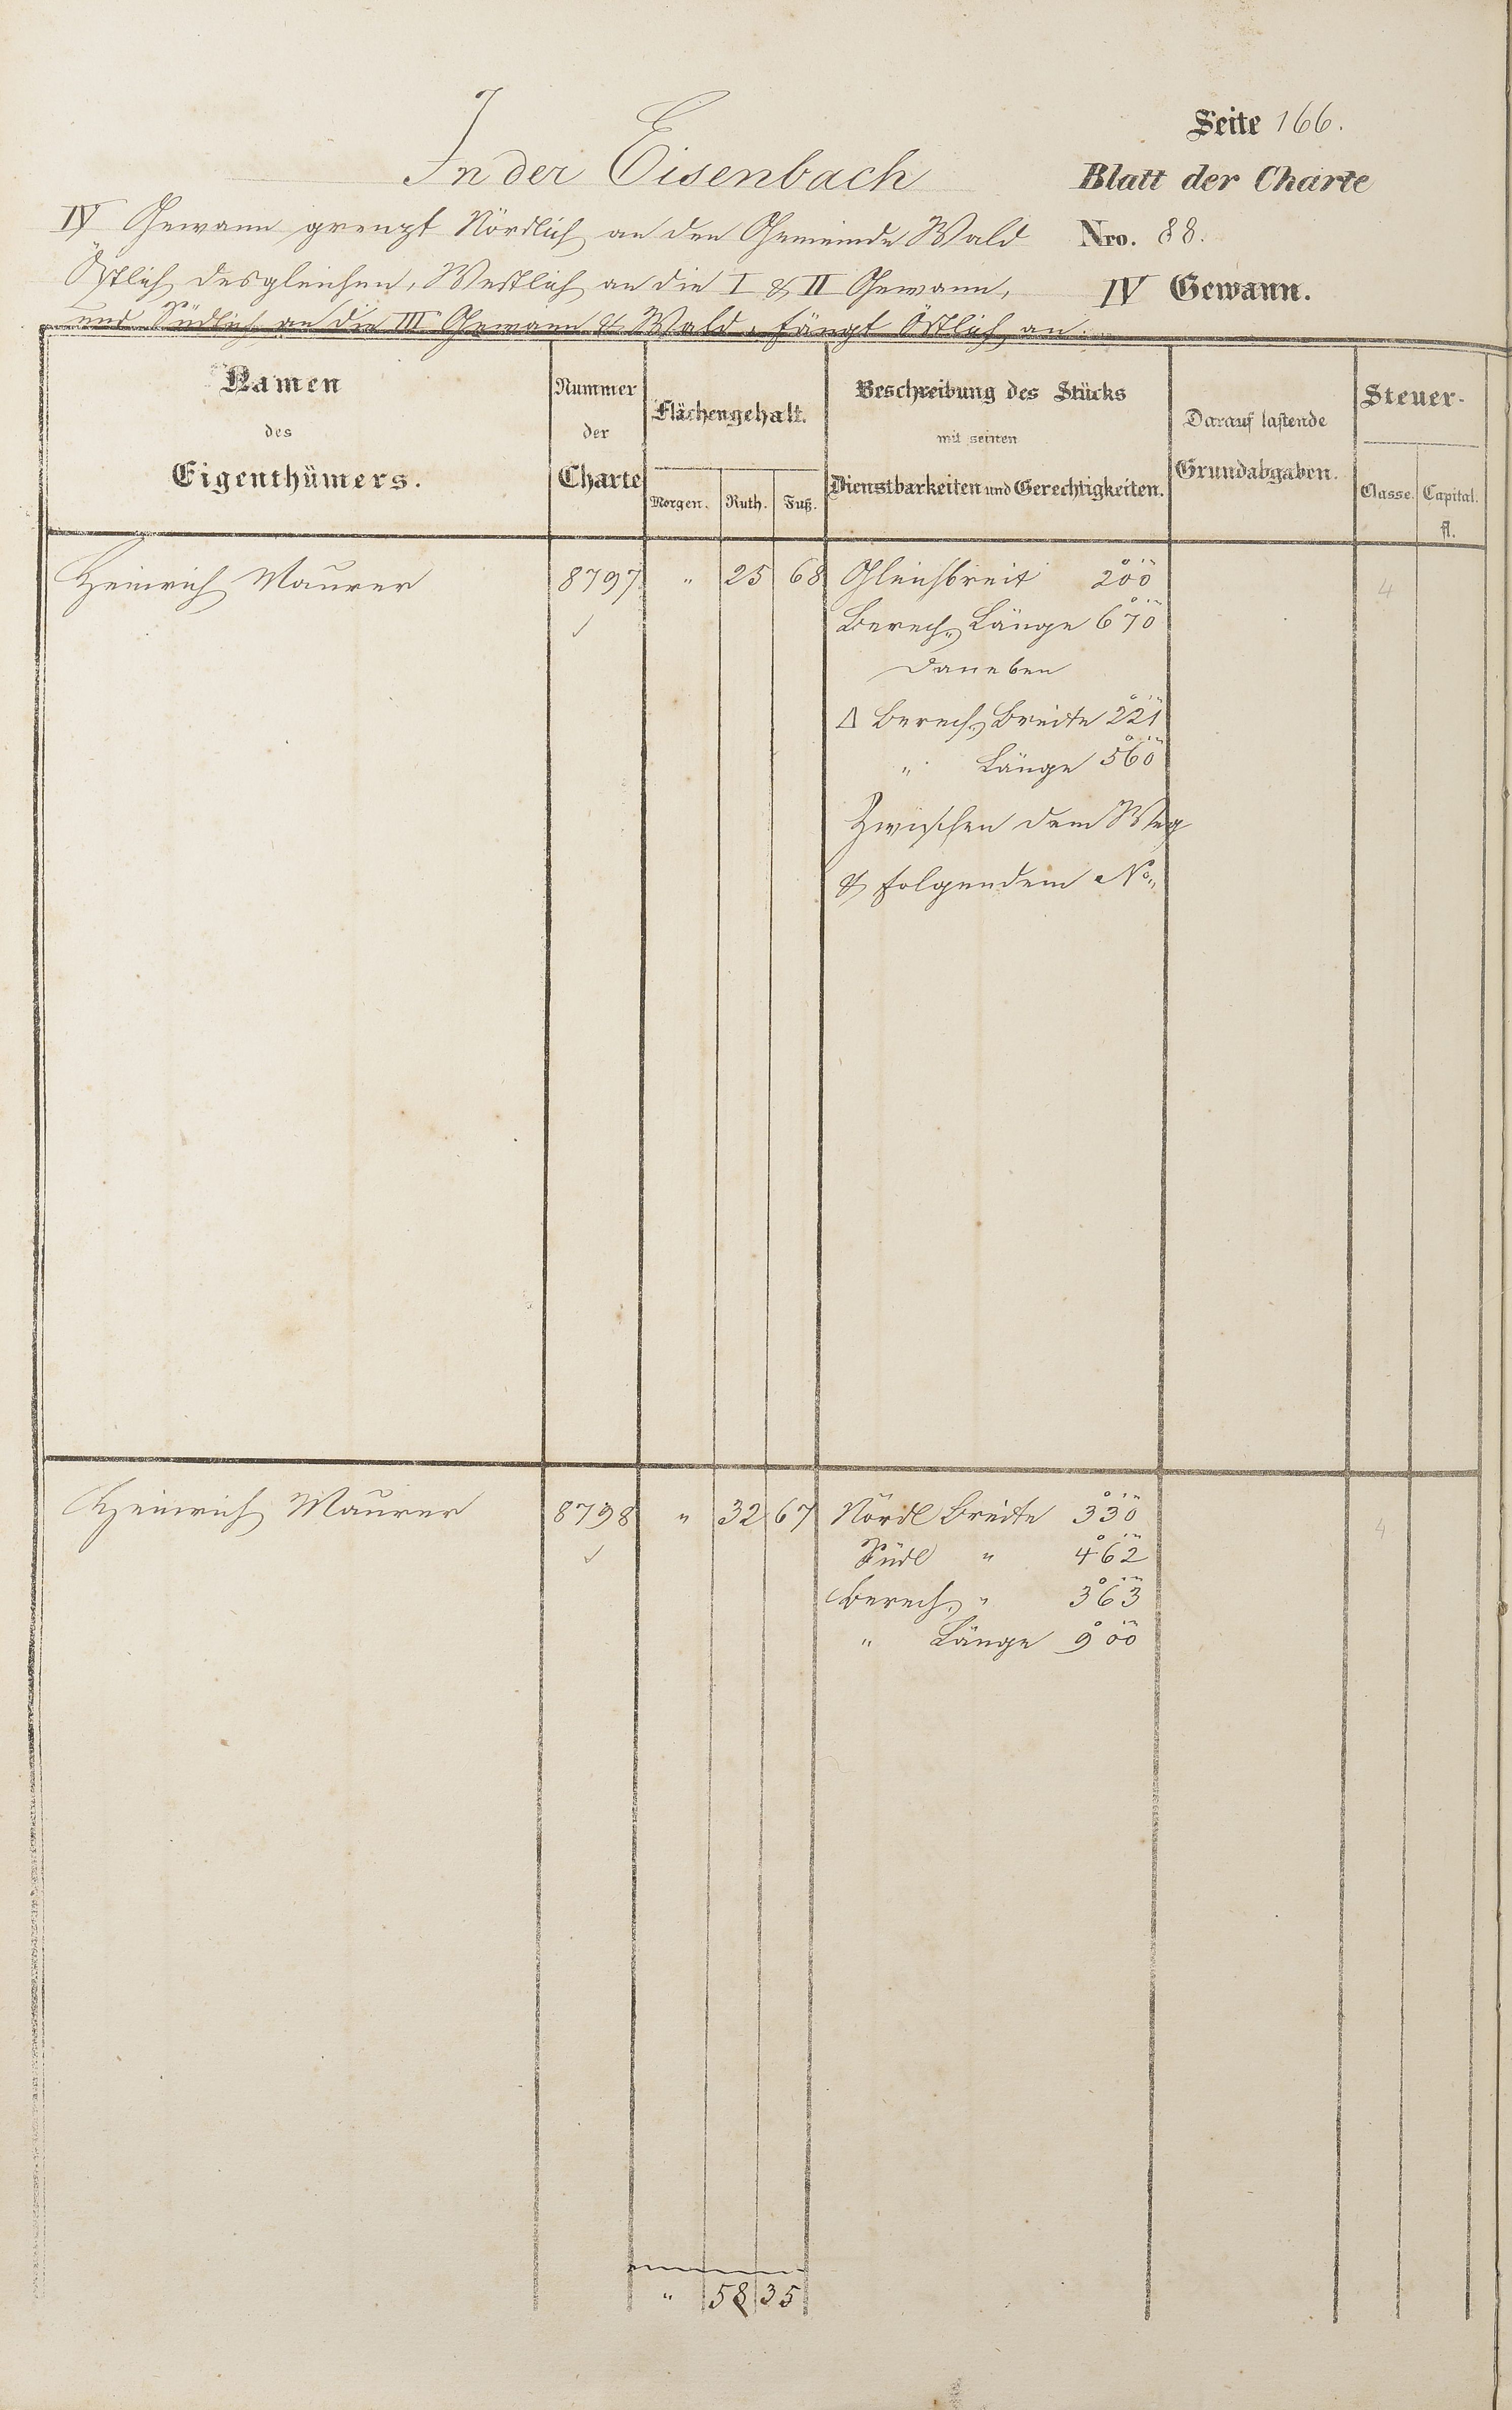 Seite 166.
In der Eisenbach
Blatt der Charte
IV Gewann grenzt Nördlich an den Gemeinde Wald
Nro. 88.
Östlich desgleichen, Westlich an die I & II Gewann,
IV Gewann.
und Südlich an die III Gewann & Wald. fängt Östlich an.
Namen
des
Eigenthümers.
Nummer
der
Charte
Flächengehalt.
Morgen. Ruth. Fuß.
Beschreibung des Stücks
mit seinen
Dienstbarkeiten und Gerechtigkeiten.
Darauf lastende
Grundabgaben.
Steuer-
Classe. Capital.
fl.
Heinrich Maurer 8797 " 25 68 Gleichbreit 200 4
Berech. Länge 670
Daneben
Δ Berech. Breite 221
" Länge 560
Zwischen dem Weg
& folgendem No.
Heinrich Maurer 8798 " 32 67 Nördl Breite 330 4
Südl " 462
Berech. " 363
" Länge 900
" 58 35